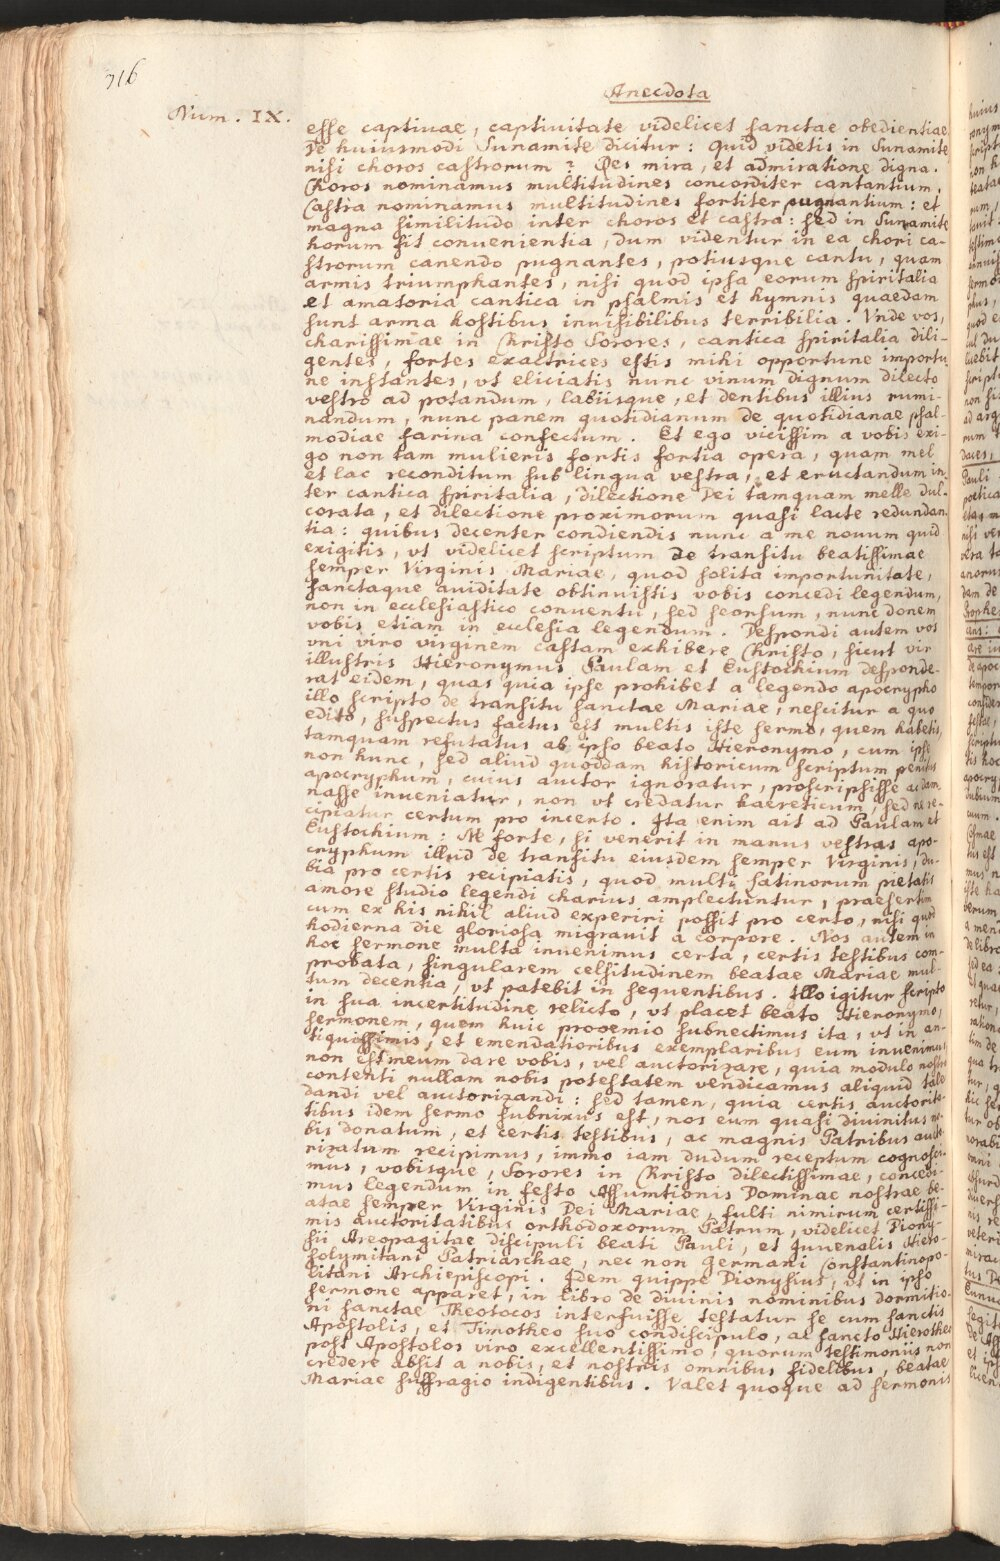 716
Anecdota
Num. IX.
esse captiuae, captiuitate videlicet sanctae obedientiae
De huiusmodi Sunamite dicitur: Quid videtis in Sunamite
nisi choros castrorum? Res mira, et admiratione digna.
Choros nominamus multitudines concorditer cantantium,
Castra nominamus multitudines fortiter pugnantium: et
magna similitudo inter choros et castra: sed in Sunamite
horum fit conuenientia, dum videntur in ea chori ca-
strorum canendo pugnantes, potiusque cantu, quam
armis triumphantes, nisi quod ipsa eorum spiritalia
et amatoria cantica in psalmis et hymnis quaedam
sunt arma hostibus inuisibilibus terribilia. Vnde vos,
charissimae in Christo Sorores, cantica spiritalia dili-
gentes, fortes exactrices estis mihi opportune importu-
ne instantes, vt eliciatis nunc vinum dignum dilecto
vestro ad potandum, labiisque, et dentibus illius rumi-
nandum, nunc panem quotidianum de quotidianae psal-
modiae farina confectum. Et ego vicissim a vobis exi-
go non tam mulieris fortis fortia opera, quam mel
et lac reconditum sub lingua vestra, et eructandum in-
ter cantica spiritalia, dilectione Dei tamquam melle dul-
corata, et dilectione proximorum quasi lacte redundan-
tia: quibus decenter condiendis nunc a me nouum quid
exigitis, vt videlicet scriptum de transitu beatissimae
semper Virginis Mariae, quod solita importunitate,
sanctaque auiditate obtinuistis vobis concedi legendum,
non in ecclesiastico conuentu, sed seorsum, nunc donem
vobis etiam in ecclesia legendum. Despondi autem vos
vni viro virginem castam exhibere Christo, sicut vir
illustris Hieronymus Paulam et Eustochium desponde-
rat eidem, quas quia ipse prohibet a legendo apocrypho
illo scripto de transitu sanctae Mariae, nescitur a quo
edito, suspectus factus est multis iste sermo, quem habetis,
tamquam refutatus ab ipso beato Hieronymo, cum ipse
non hunc, sed aliud quoddam historicum scriptum penitus
apocryphum, cuius auctor ignoratur, proscripsisse ac dam-
nasse inueniatur, non vt credatur haereticum, sed ne re-
cipiatur certum pro incerto. Ita enim ait ad Paulam et
Eustochium: Ne forte, si venerit in manus vestras apo-
cryphum illud de transitu eiusdem semper Virginis, du-
bia pro certis recipiatis, quod multi Latinorum pietatis
amore studio legendi charius amplectuntur, praesertim
cum ex his nihil aliud experiri possit pro certo, nisi quod
hodierna die gloriosa migrauit a corpore. Nos autem in
hoc sermone multa inuenimus certa, certis testibus com-
probata, singularem celsitudinem beatae Mariae mul-
tum decentia, vt patebit in sequentibus. Illo igitur scripto
in sua incertitudine relicto, vt placet beato Hieronymo,
sermonem, quem huic prooemio subnectimus ita, vt in an-
tiquissimis, et emendatioribus exemplaribus eum inuenimus,
non est meum dare vobis, vel auctorizare, quia modulo nostro
contenti nullam nobis potestatem vendicamus aliquid tale
dandi vel auctorizandi: sed tamen, quia certis auctorita-
tibus idem sermo subnixus est, nos eum quasi diuinitus no-
bis donatum, et certis testibus, ac magnis Patribus aucto-
rizatum recipimus, immo iam dudum receptum cognosci-
mus, vobisque, Sorores in Christo dilectissimae, concedi-
mus legendum in festo Assumtionis Dominae nostrae be-
atae semper Virginis Dei Mariae, fulti nimirum certissi-
mis auctoritatibus orthodoxorum Patrum, videlicet Diony-
sii Areopagitae discipuli beati Pauli, et Iuuenalis Hiero-
solymitani Patriarchae, nec non Germani Constantinopo-
litani Archiepiscopi. Idem quippe Dionysius, vt in ipso
sermone apparet, in libro de diuinis nominibus dormitio-
ni sanctae Theotocos interfuisse testatur se cum sanctis
Apostolis, et Timotheo suo condiscipulo, ac sancto Hierotheo
post Apostolos viro excellentissimo, quorum testimoniis non
credere absit a nobis, et nostris omnibus fidelibus, beatae
Mariae suffragio indigentibus. Valet quoque ad sermonis